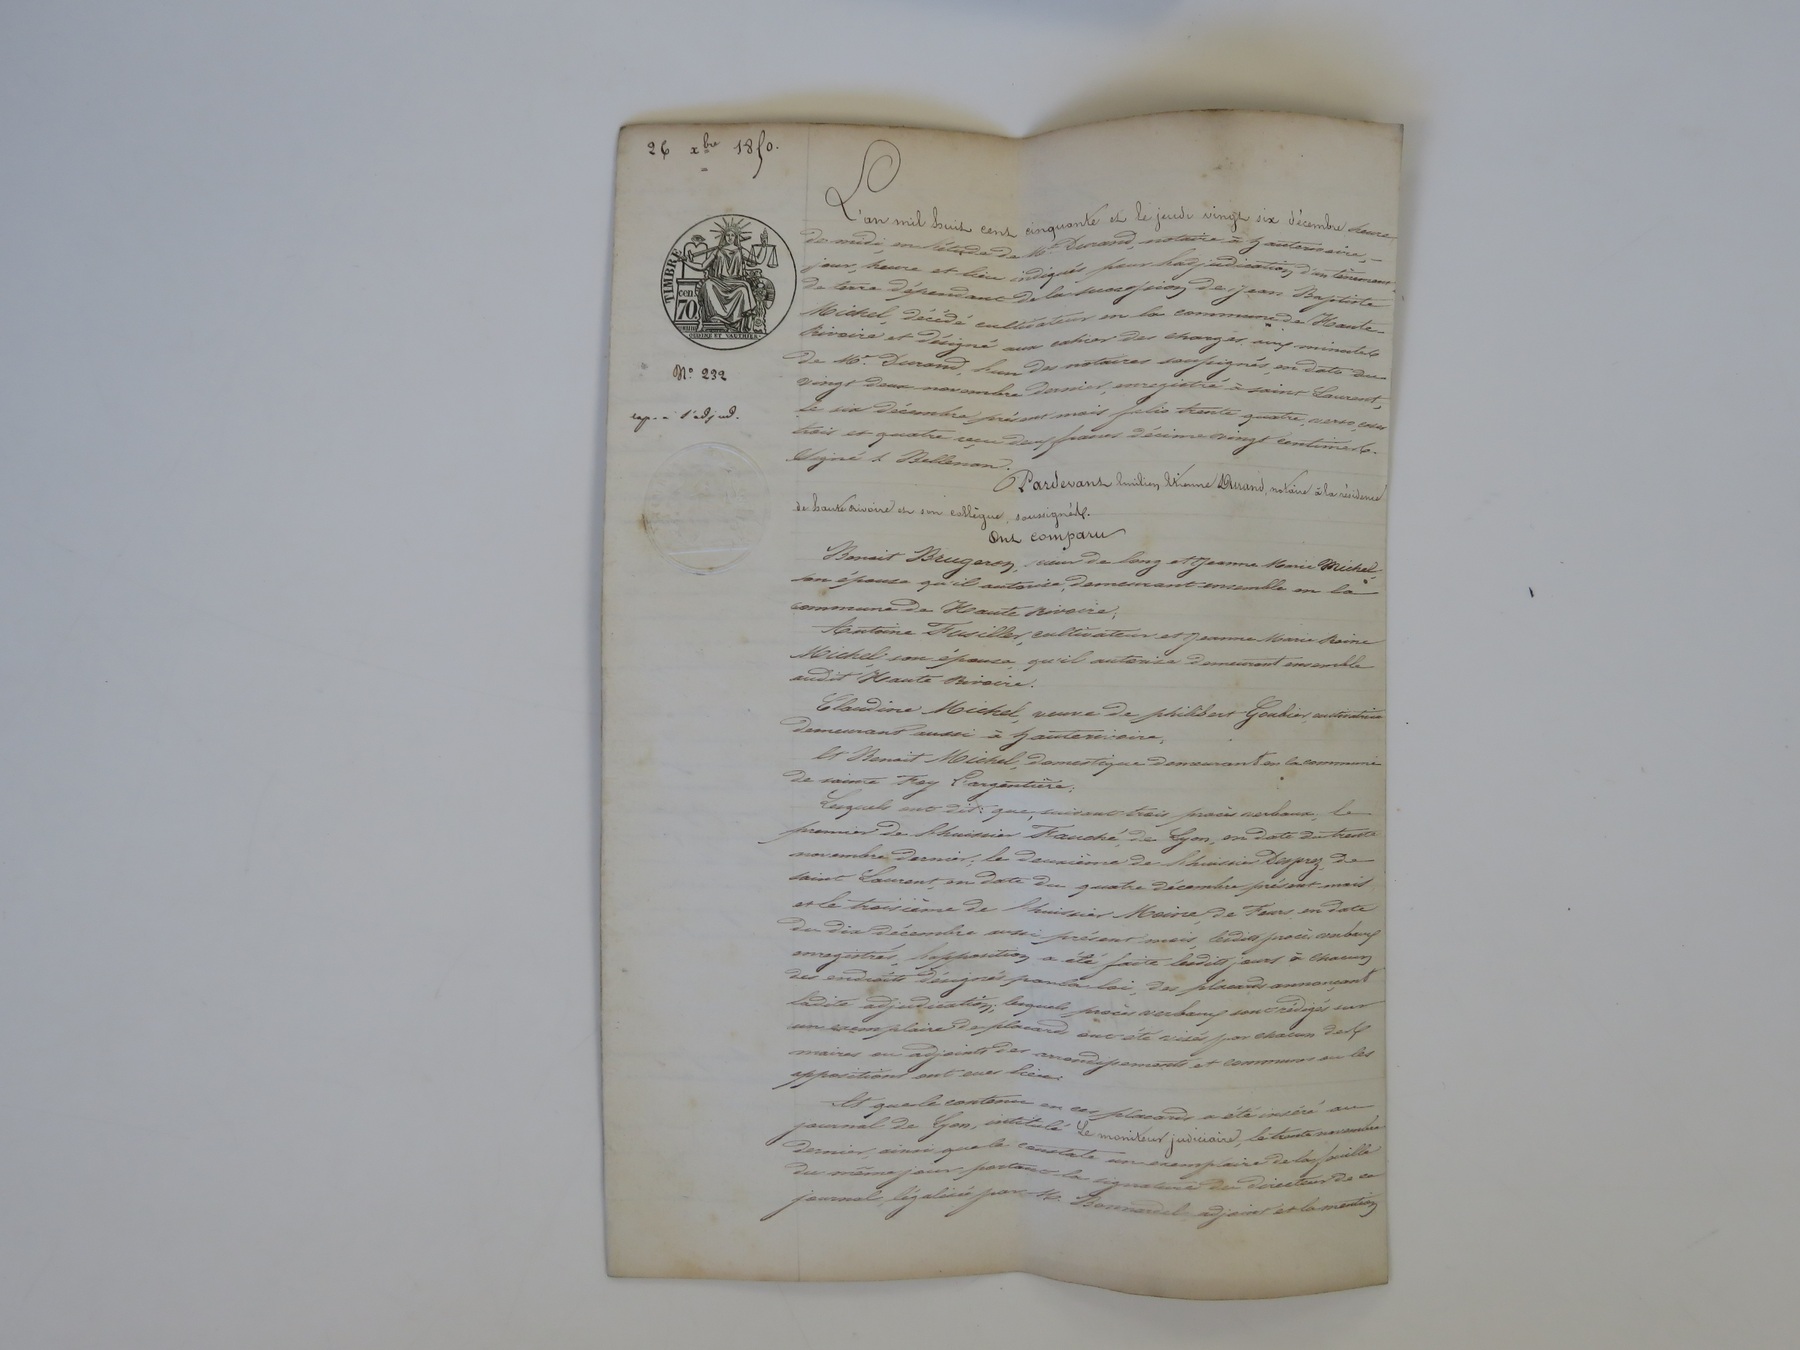 26 xbre 1850.
TIMBRE
cen. 70
N° 232
exp. à l'adjud.
L'an mil huit cent cinquante et le jeudi vingt six décembre heure
de midi, en l'étude de Me Durand, notaire à hauterivoire,
jour, heure et lieu indiqués pour l'adjudication d'un tènement
de terre dépendant de la succession de Jean Baptiste
Michel, décédé cultivateur en la commune de Haute-
Rivoire et désigné aux cahier des charges, aux minutes
de Me Durand, l'un des notaires soussignés, en date du
vingt deux novembre dernier, enregistré à saint Laurent,
le six décembre présent mois folio trente quatre, verso, cases
trois et quatre reçu deux francs décime vingt centimes.
Signé : Bellemon.
Pardevant Etienne Durand, notaire à la résidence
de haute Rivoire et son collègue, soussignés.
Ont comparu
Benoit Brugeron, scieur de long et Jeanne Marie Michel,
son épouse qu'il autorise, demeurant ensemble en la
commune de Haute Rivoire;
Antoine Fusiller, cultivateur et Jeanne Marie Reine
Michel son épouse, qu'il autorise demeurant ensemble
audit Haute Rivoire.
Claudine Michel, veuve de philibert Goubier, cultivatrice
demeurant aussi à hauterivoire,
Et Benoit Michel, domestique demeurant en la commune
de sainte Foy L'argentière;
Lesquels ont dit: que, suivant trois procès verbaux, le
premier de l'huissier Fauché, de Lyon, en date du trente
novembre dernier; le deuxième de l'huissier Dupuy, de
saint Laurent, en date du quatre décembre présent mois,
et le troisième de l'huissier Moine, de Feurs, en date
du dix décembre aussi présent mois, lesdits procès verbaux
enregistrés, l'apposition a été faite lesdits jours à chacun
des endroits désignés par la loi, des placards annonçant
ladite adjudication; lesquels procès verbaux sont rédigés sur
un exemplaire de placard ont été visés par chacun des
maires ou adjoints des arrondissements et communes où les
appositions ont eues lieu.
Et que le contenu en ces placards a été inséré au
journal de Lyon, intitulé Le moniteur judiciaire, le trente novembre
dernier, ainsi que le constate un exemplaire de la feuille
du même jour portant la signature du directeur de ce
journal, légalisée par M. Bonnardel adjoint et la mention